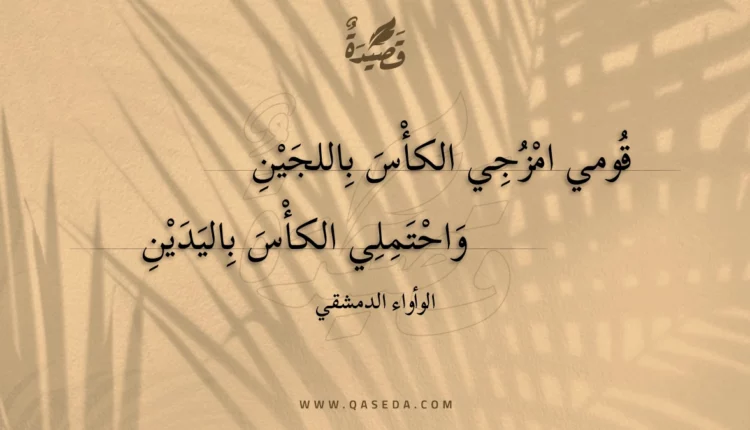 قَصِيْدَةٌ
قُومي امْزُجِي الكأْسَ بِاللجَيْنِ
وَاحْتَمِلِي الكأْسَ بِاليَدَيْنِ
الوأواء الدمشقي
WWW.QASEDA.COM